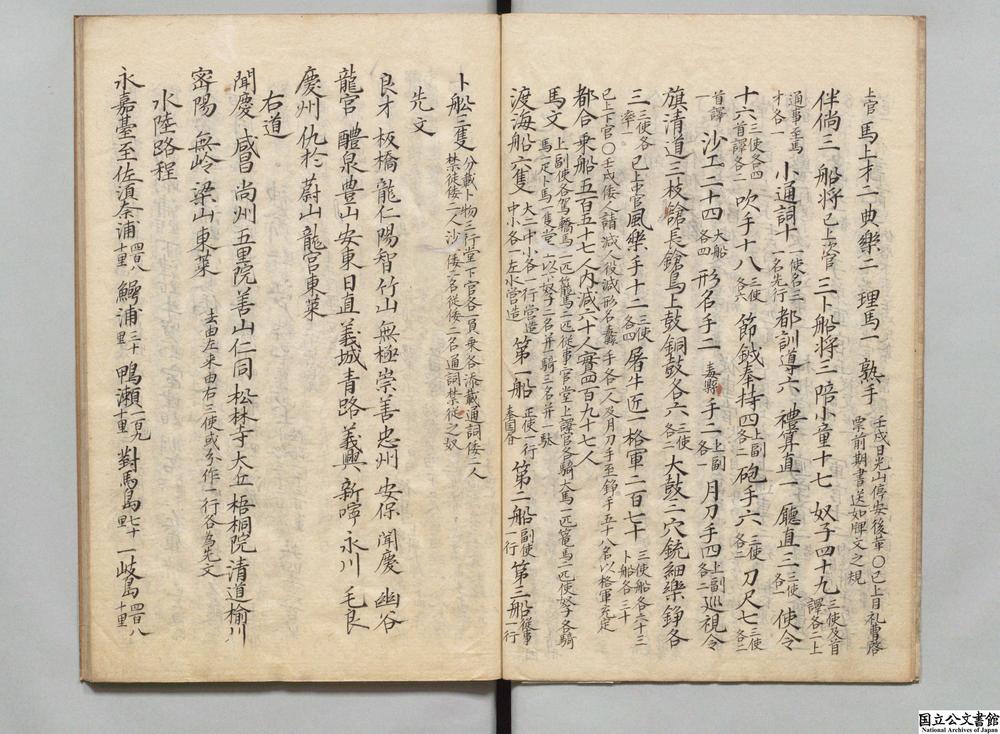 上官 馬上才二 典樂二 理馬一 熟手 壬戌日光山停安後革○已上自礼曹啓稟前期書送如牌文之規
伴倘三 船将已上次官三 卜船将三 陪小童十七 奴子四十九三使及首譯各二上
通事壹馬才各一 小通詞十一使各三一名先行 都訓導六 禮單直一 廳直三三使各一 使令
十六三使各四首譯各二 吹手十八三使各六 節鉞奉持四上副各二 砲手六三使各二 刀尺七三使各二
首譯一 沙工二十四大船各四 形名手二 纛縣手二上副各一 月刀手四上副各二 巡視令
旗清道三枝鎗長鎗馬上鼓銅鼓各六三使各二 大鼓三穴銃細樂錚各
三三使各一率 已上中官 風樂手十二三使各四 屠牛匠一 格軍二百七十三使船各六十三卜船各三十
已上下官○壬戌倭人請減人役減形名纛手各八人及月刀手至錚手五十八名以格軍充定
都合乗船五百五十七人内減六十人實四百九十七人
馬文 上副使各駕轎馬一匹籠馬二匹従事官堂上譯官各騎大馬一匹篭馬二匹使奴子各騎馬一匹卜馬一隻堂上以小奴子二名并一騎三名并一張
渡海船六隻大二中二小各一行營造中小各一左水營造 第一船正使一行奉國書 第二船副使一行 第三船従事一行
卜船三隻分載卜物三行堂下官各一員乗各添載通詞倭二人禁徒倭二人沙倭二名従倭二名通詞禁徒之奴
先文
良才 板橋 龍仁 陽智 竹山 無極 崇善 忠州 安保 聞慶 幽谷
龍宮 醴泉 豊山 安東 日直 義城 青路 義興 新寧 永川 毛良
慶州 仇於 蔚山 龍宮 東萊
右道
聞慶 咸昌 尚州 五里院 善山 仁同 松林寺 大丘 梧桐院 清道 楡川
密陽 無岭 梁山 東萊 去由左来由右三使或分作一行各為先文
水陸路程
永嘉臺至佐湏奈浦四百八十里 鰐浦三十里 鴨瀬一百九十里 對馬島七十里 一岐島四百八十里
国立公文書館
National Archives of Japan